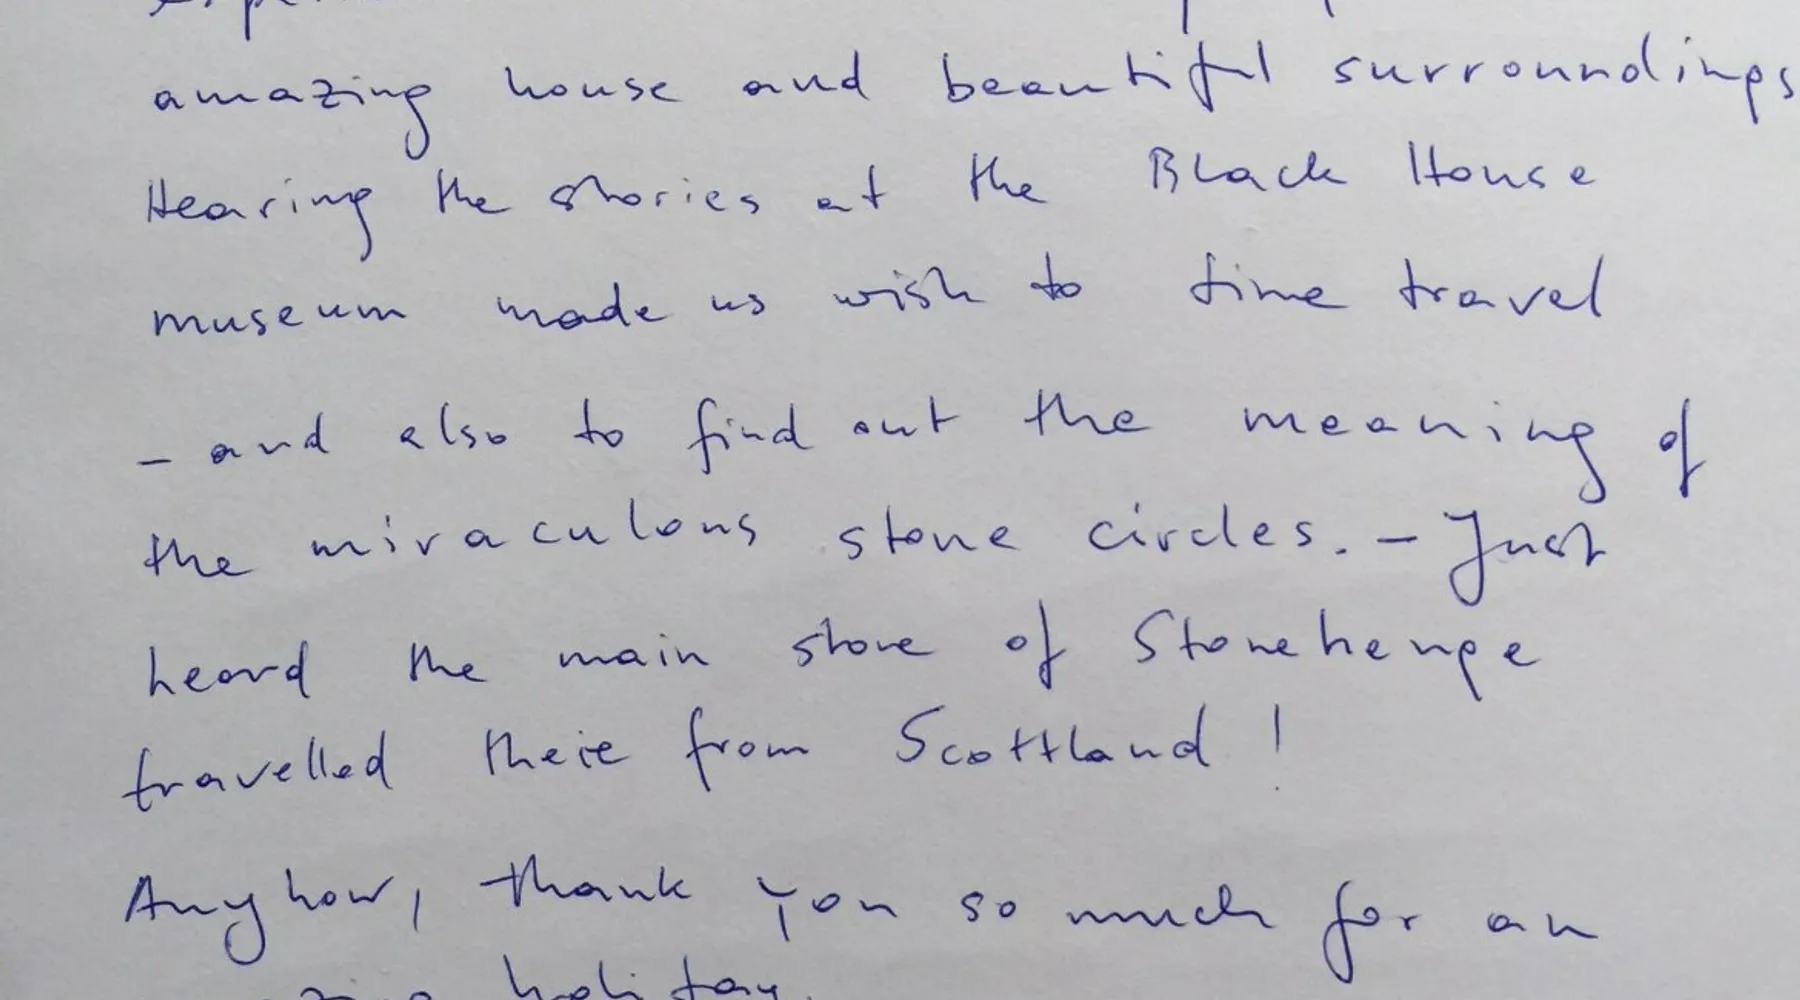 amazing house and beautiful surroundings
Hearing the stories at the Black House
museum made us wish to time travel
- and also to find out the meaning of
the miraculous stone circles. - Just
heard the main stone of Stonehenge
travelled there from Scottland!
Anyhow, thank you so much for an
holiday.